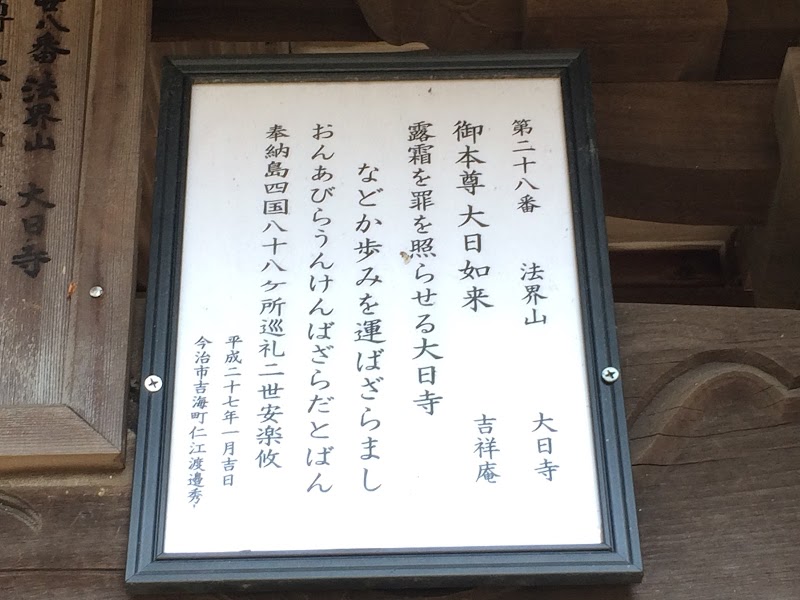 第二十八番 法界山 大日寺
御本尊 大日如来 吉祥庵
露霜を罪を照らせる大日寺
などか歩みを運ばざらまし
おんあびらうんけんばざらだとばん
奉納島四国八十八ヶ所巡礼二世安楽攸
平成二十七年一月吉日
今治市吉海町仁江渡邉秀
廿八番 法界山 大日寺